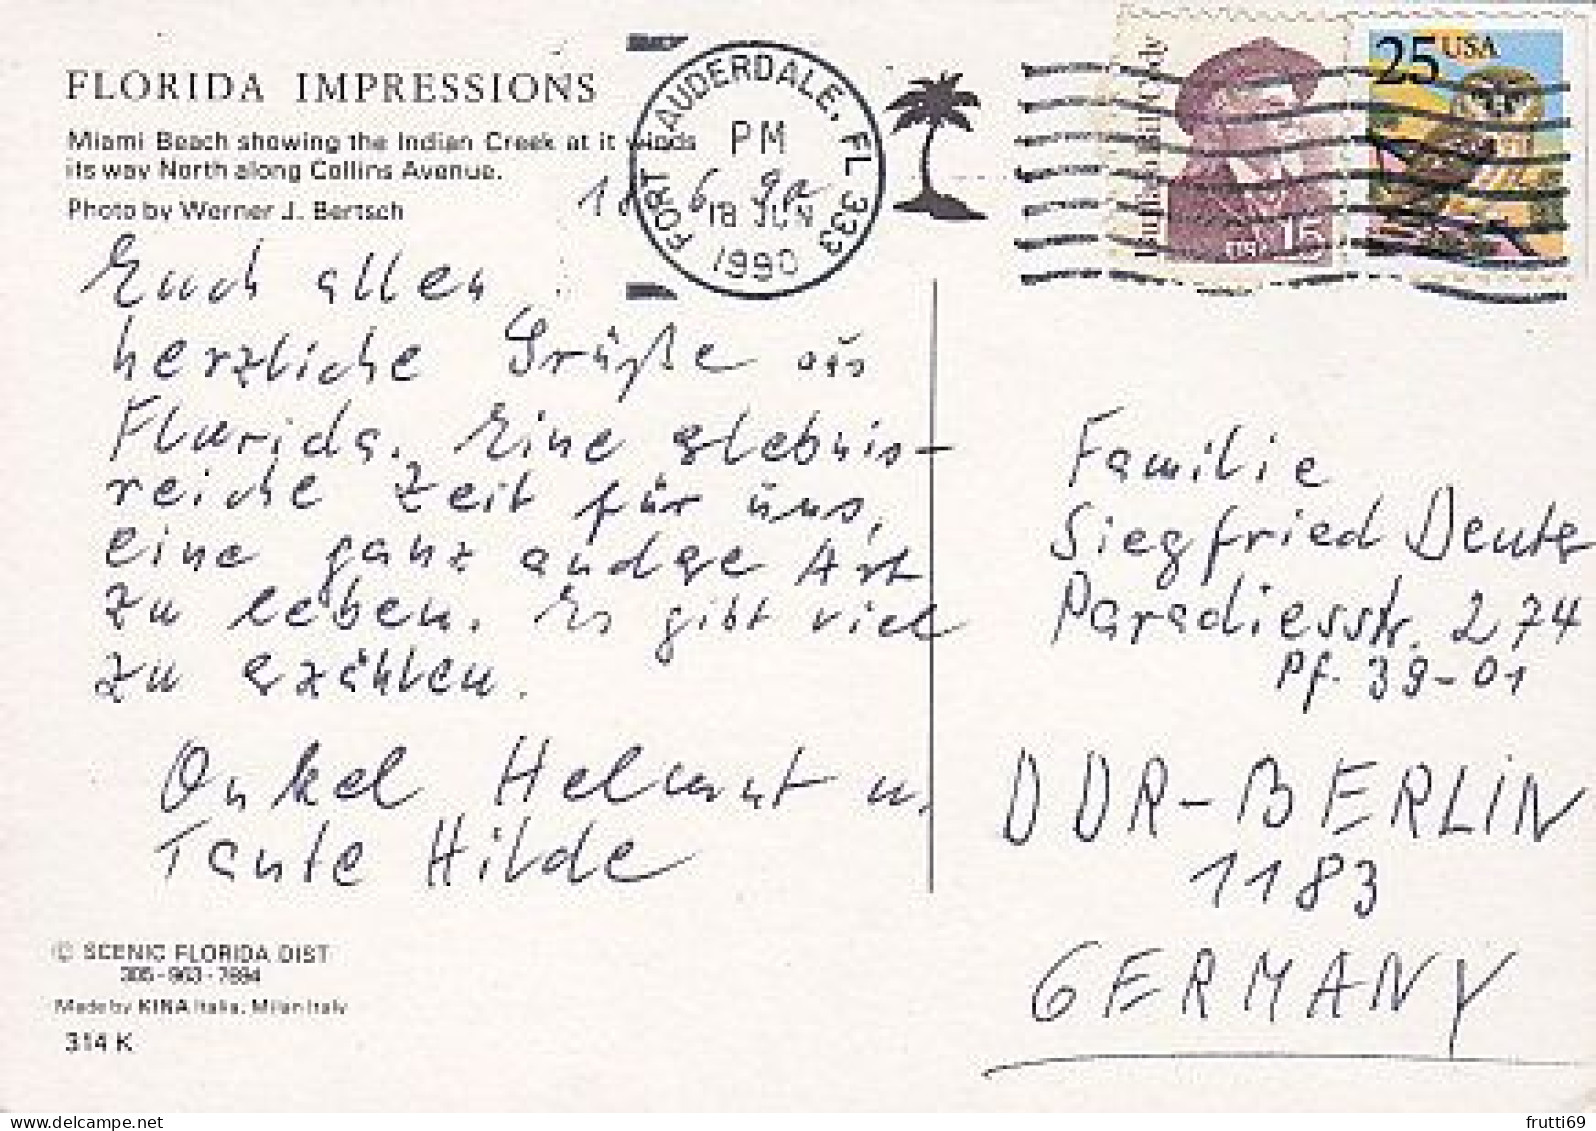 FLORIDA IMPRESSIONS
Miami Beach showing the Indian Creek at it winds
its way North along Collins Avenue.
Photo by Werner J. Bertsch
18 6 90
FORT LAUDERDALE, FL 333
PM
18 JUN
1990
Buffalo Bill Cody
USA 15
25 USA
Euch allen
herzliche Grüße aus
Florida. Eine erlebnis-
reiche Zeit für uns,
eine ganz andere Art
zu leben. Es gibt viel
zu erzählen.
Onkel Helmut u.
Tante Hilde
Familie
Siegfried Deuter
Paradiesstr. 274
Pf. 39-01
DDR-BERLIN
1183
GERMANY
© SCENIC FLORIDA DIST
305-963-7894
Made by KINA Italia, Milan Italy
314 K
frutti69